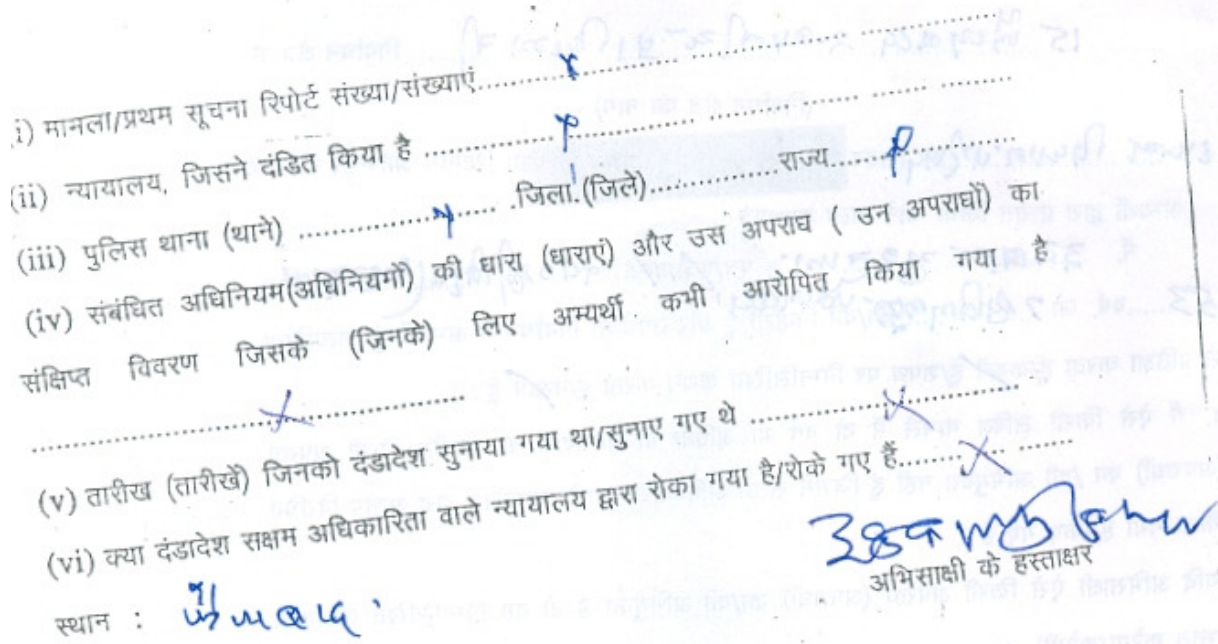 i) मामला/प्रथम सूचना रिपोर्ट संख्या/संख्याएं.....x.....
(ii) न्यायालय, जिसने दंडित किया है .....x.....
(iii) पुलिस थाना (थाने) .....x..... .जिला.(जिले)............राज्य..........
(iv) संबंधित अधिनियम(अधिनियमों) की धारा (धाराएं) और उस अपराध ( उन अपराधों) का
संक्षिप्त विवरण जिसके (जिनके) लिए अभ्यर्थी कभी आरोपित किया गया है
.....x.....
(v) तारीख (तारीखें) जिनको दंडादेश सुनाया गया था/सुनाए गए थे .....x.....
(vi) क्या दंडादेश सक्षम अधिकारिता वाले न्यायालय द्वारा रोका गया है/रोके गए हैं.....x.....
अभिसाक्षी के हस्ताक्षर
स्थान :